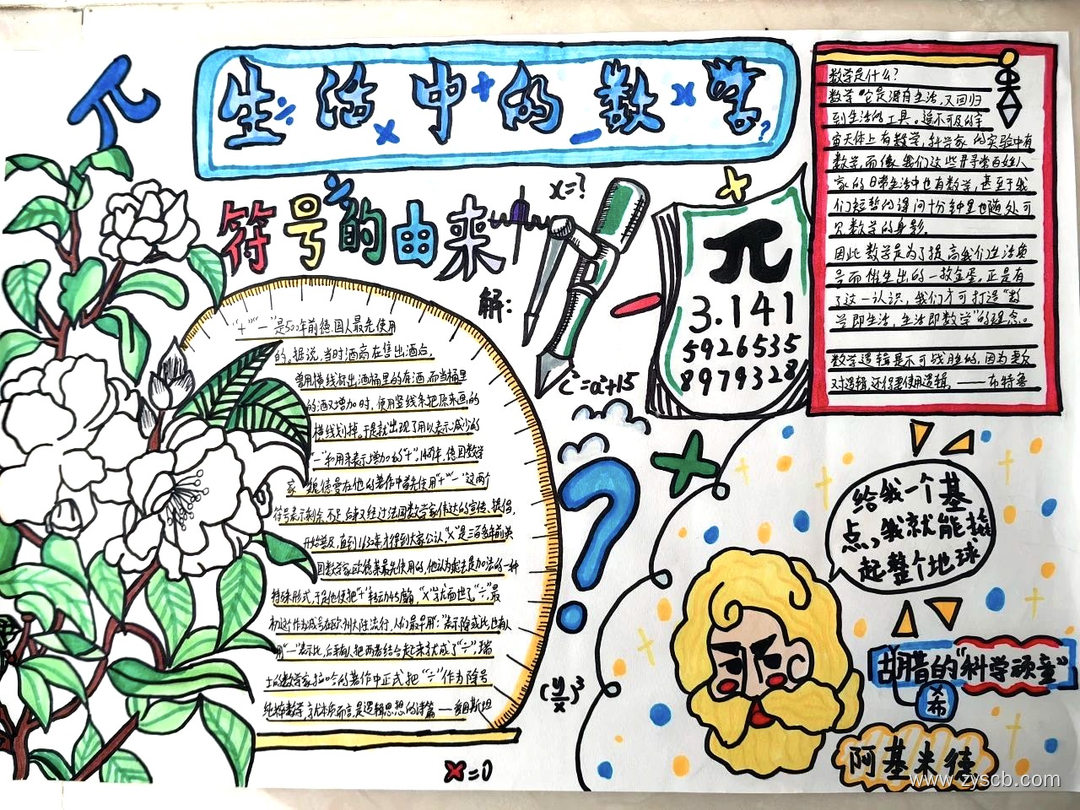 π
生活中的数学
符号的由来
x=?
解:
"+""一"是500年前德国人最先使用
的。据说,当时酒商在售出酒后,
曾用横线标出酒桶里的存酒,而当桶里
的酒又增加时,便用竖线条把原来画的
横线划掉。于是就出现了用以表示减少的
"一"和用来表示增加的"+",1489年,德国数学
家 德曼在他的著作中首先使用"+""一"这两个
符号表示剩余、不足,后来又经过法国数学家伟达的宣传、提倡,
开始普及,直到1630年才得到大家公认。"x"是三百多年前英
国数学家欧德莱最先使用的,他认为乘法是加法的一种
特殊形式,于是他便把"+"
"÷"作为除号
纯粹数学,就本质而言,是逻辑思想的诗篇 ——爱因斯坦
x=0
π
3.141
5926535
8979328
c²=a²+15
?
(y/x)³
数学是什么?
数学,它是源自生活,又回归
到生活的工具。遥不可及的宇
宙天体上有数学,科学家的实验中有
数学,而像我们这些寻常百姓人
家的日常生活中也有数学,甚至于我
们短暂的课间十分钟里也随处可
见数学的身影。
因此数学是为了提高我们生活与
号而催生出的一枚金蛋,正是有
了这一认识,我们才可打造"数
学即生活,生活即数学"的理念。
数学逻辑是不可战胜的,因为要反
对逻辑,还得要使用逻辑。——布特鲁
给我一个基
点,我就能撬
起整个地球
古腊的"科学顽童"
希
阿基米德
www.zyscb.com